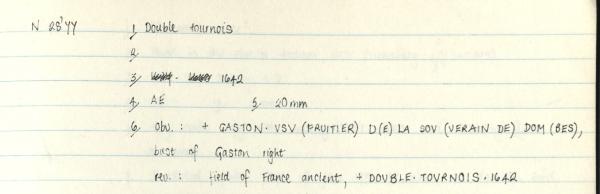 N 28'77 1, Double tournois
2,
3, 1642
4, AE 5, 20mm
6, obv. : + GASTON. VSV (FRUITIER) D(E) LA SOV (VERAIN DE) DOM (BES),
bust of Gaston right
rev. : field of France ancient, + DOUBLE. TOVRNOIS. 1642